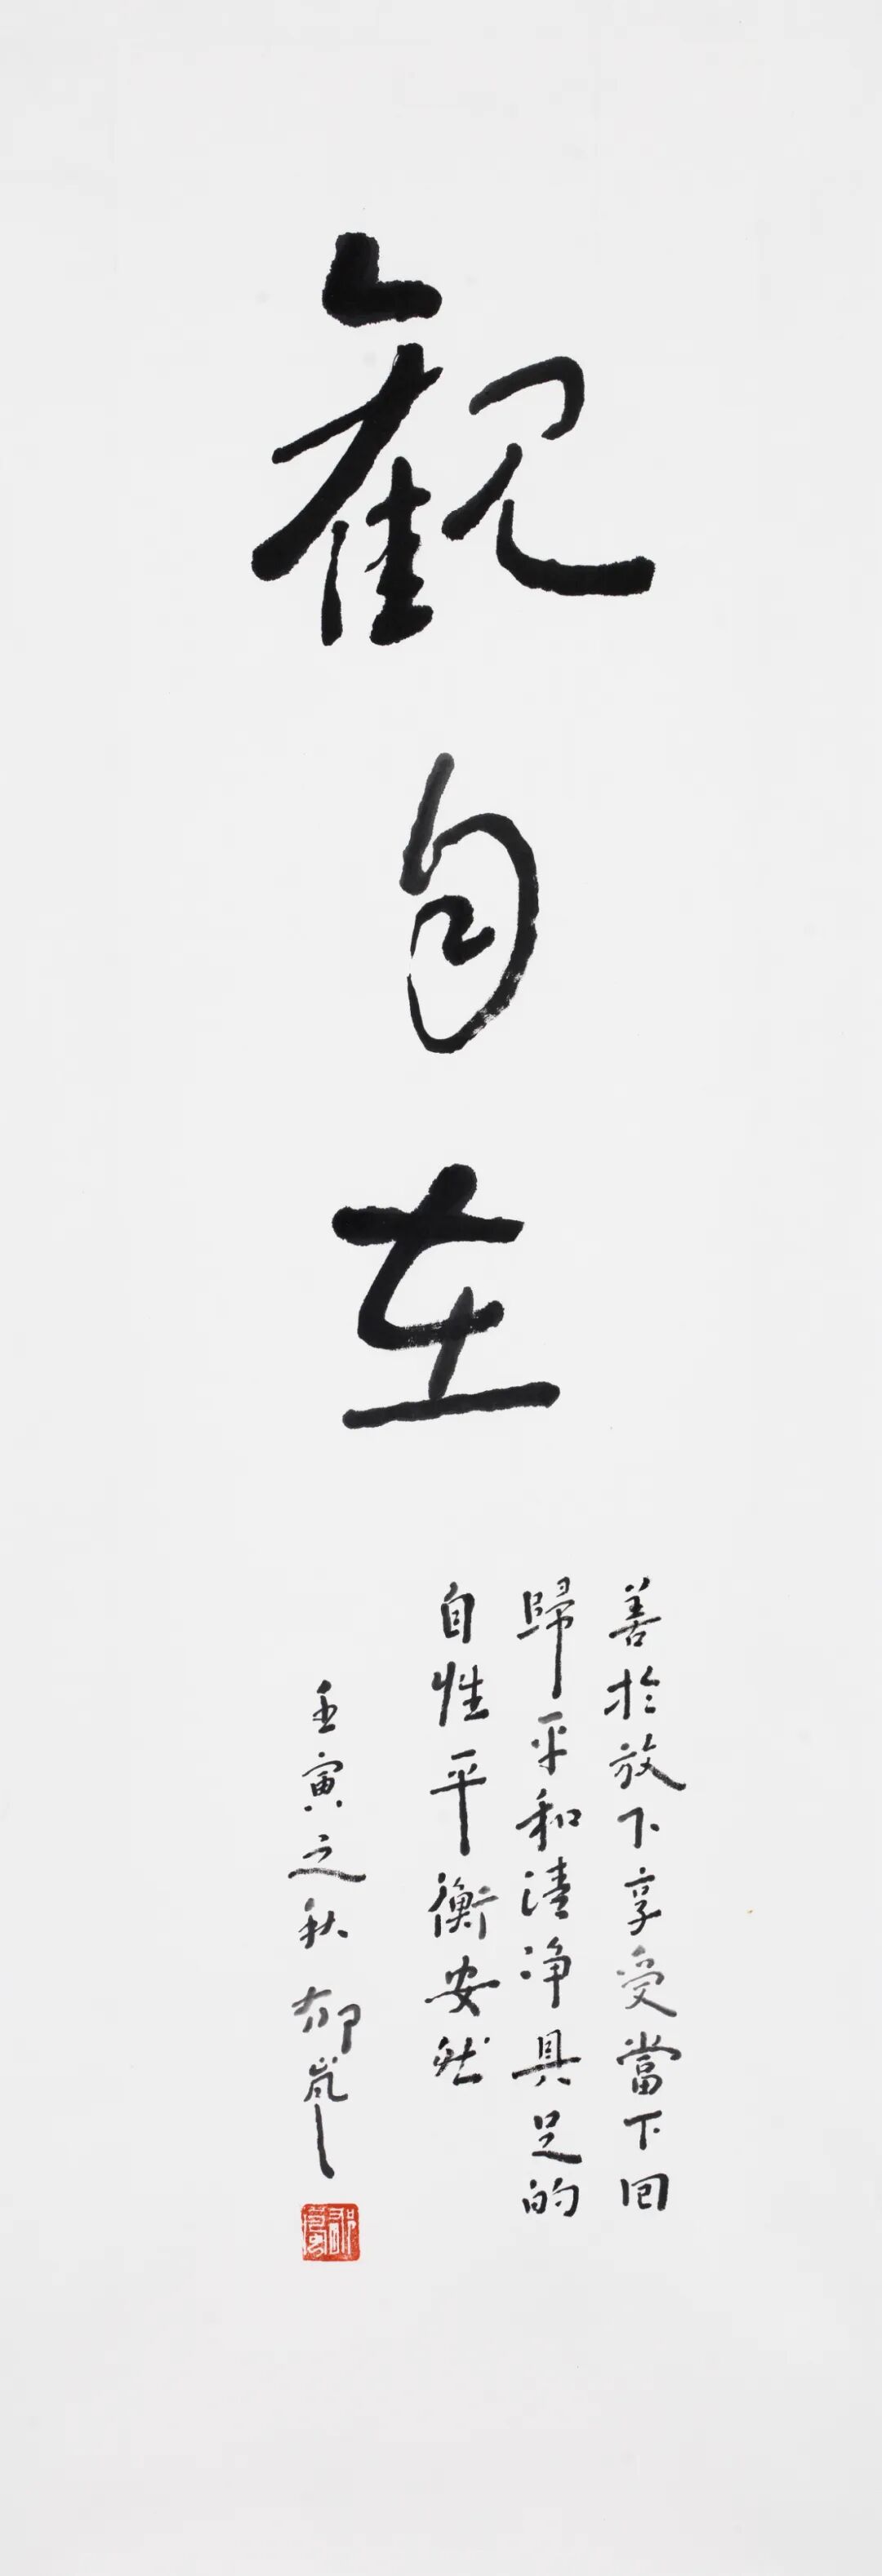 觀自在
善於放下享受當下回
歸平和清净具足的
自性平衡安然
壬寅之秋 郁嵐